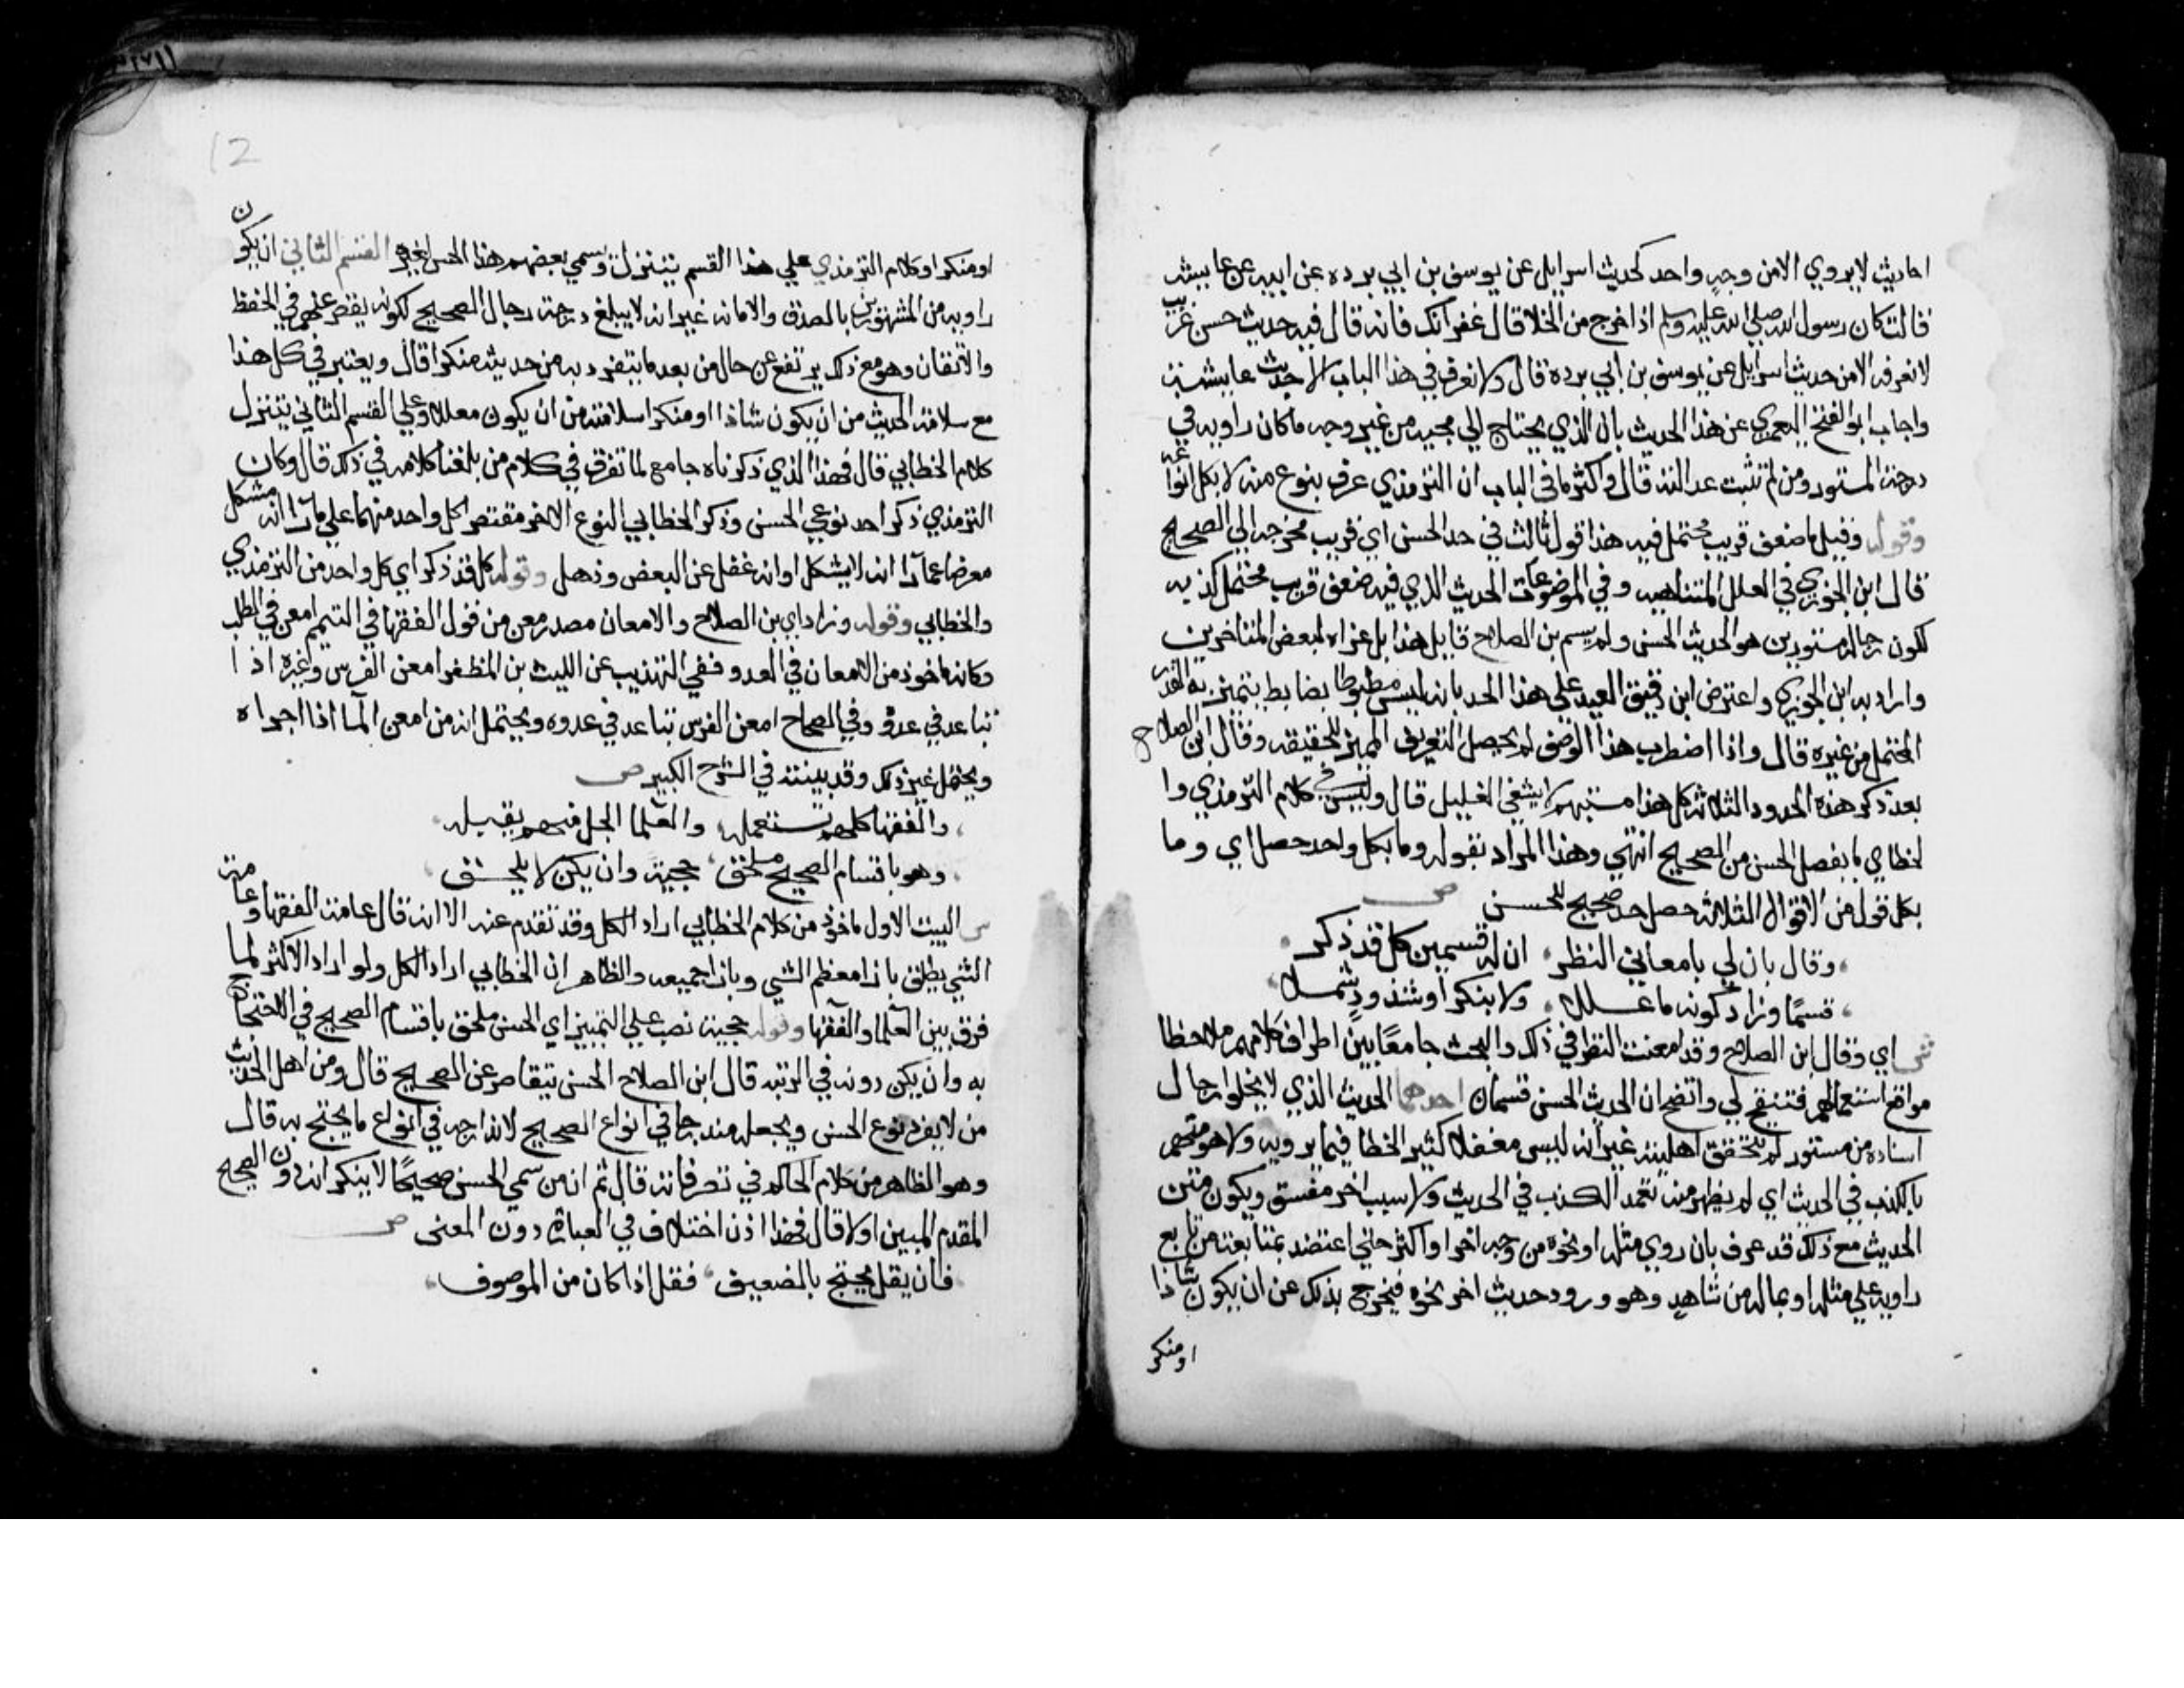 احاديث لا يروي الا من وجه واحد كحديث اسرايل عن يوسف بن ابي برده عن ابيه عن عايشه
قالت كان رسول الله صلي الله عليه وسلم اذا خرج من الخلا قال غفرانك فانه قال فيه حديث حسن غريب
لا نعرفه الا من حديث اسرايل عن يوسف بن ابي برده قال ولا نعرف في هذا الباب الا حديث عايشة
واجاب ابو الفتح اليعمري عن هذا الحديث بان الذي يحتاج الي مجيه من غير وجه ما كان راويه في
درجة المستور ومن لم تثبت عدالته قال واكثر ما في الباب ان الترمذي عرف بنوع منه لا بكل انواعه
وقوله وقيل ما ضعف قريب محتمل فيه هذا قول ثالث في حد الحسن اي قريب مخرجه الي الصحيح
قال ابن الجوزي في العلل المتناهيه وفي الموضوعات الحديث الذي فيه ضعف قريب محتمل كذبه
لكون رجاله مستورين هو الحديث الحسن ولم يسم بن الصلاح قايل هذا بل عزاه لبعض المتاخرين
واراد به ابن الجوزي واعترض ابن دقيق العيد علي هذا الحد بانه ليس مضبوطا بضابط يتميز به القدر
المحتمل من غيره قال واذا اضطرب هذا الوصف لم يحصل التعريف المميز للحقيقه وقال ابن الصلاح
بعد ذكر هذه الحدود الثلاثة كل هذا مستبهم لا يشفي الغليل قال وليس في كلام الترمذي وا
لخطابي ما يفصل الحسن من الصحيح انتهي وهذا المراد بقوله وما بكل واحد حصل اي وما
بكل قول من الاقوال الثلاثة حصل حد صحيح للحسن ص
وقال بان لي بامعاني النظر ، ان له قسمين كل قد ذكر
قسمًا وزاد كونه ما عللا ، ولا بنكر او شذوذ شملا
ش اي وقال ابن الصلاح وقد امعنت النظر في ذلك والبحث جامعًا بين اطراف كلامهم ملاحظا
مواقع استعمالهم فتنقح لي واتضح ان الحديث الحسن قسمان احدهما الحديث الذي لا يخلوا رجال
اسناده من مستور لم تتحقق اهليته غير انه ليس مغفلا كثير الخطا فيما يرويه ولا هو متهم
بالكذب في الحديث اي لم يظهر منه تعمد الكذب في الحديث ولا سبب اخر مفسق ويكون متن
الحديث مع ذلك قد عرف بان روي مثله او نحوه من وجه اخر او اكثر حتي اعتضد بمتابعة من تابع
راويه علي مثله او بماله من شاهد وهو ورود حديث اخر نحوه فيخرج بذلك عن ان يكون شاذا
او منكر
12
او منكرا وكلام الترمذي علي هذا القسم يتنزل وسمي بعضهم هذا الحسن لغيره القسم الثاني ان يكون
راويه من المشهورين بالصدق والامانه غير انه لا يبلغ درجة رجال الصحيح لكونه يقصر عنهم في الحفظ
والاتقان وهو مع ذلك يرتفع عن حال من يعد ما يتفرد به من حديثه منكرا قال ويعتبر في كل هذا
مع سلامة الحديث من ان يكون شاذا او منكرا سلامته من ان يكون معللا وعلي القسم الثاني يتنزل
كلام الخطابي قال فهذا الذي ذكرناه جامع لما تفرق في كلام من بلغنا كلامه في ذلك قال وكان
الترمذي ذكر احد نوعي الحسن وذكر الخطابي النوع الاخر مقتصر كل واحد منهما علي ما راا انه مشكل
معرضا عما راا انه لا يشكل او انه غفل عن البعض وذهل وقوله كل قد ذكر اي كل واحد من الترمذي
والخطابي وقوله وزاد اي بن الصلاح والامعان مصدر معن من قول الفقها في التيمم امعن في الطلب
وكانه ماخوذ من الامعان في العدو ففي التهذيب عن الليث بن المظفر امعن الفرس وغيره اذا
تباعد في عدوه وفي الصحاح امعن الفرس تباعد في عدوه ويحتمل انه من امعن الما اذا اجراه
ويحتمل غير ذلك وقد بينته في الشرح الكبير ص
والفقها كلهم تستعمله ، والعلما الجل منهم يقبله
وهو باقسام الصحيح ملحق ، حجية وان يكن لا يلحق
ش البيت الاول ماخوذ من كلام الخطابي اراد الكل وقد تقدم عنه الا انه قال عامة الفقها وعامة
الشي يطلق بازا معظم الشي وبازا جميعه والظاهر ان الخطابي اراد الكل ولو اراد الاكثر لما
فرق بين العلما والفقها وقوله حجية نصب علي التمييز اي الحسن ملحق باقسام الصحيح في الاحتجاج
به وان يكن دونه في الرتبه قال ابن الصلاح الحسن يتقاصر عن الصحيح قال ومن اهل الحديث
من لا يفرد نوع الحسن ويجعله مندرجا في انواع الصحيح لاندراجه في انواع ما يحتج به قال
وهو الظاهر من كلام الحاكم في تصرفاته قال ثم ان من سمي الحسن صحيحًا لا ينكر انه دون الصحيح
المقدم المبين اولا قال فهذا اذن اختلاف في العبارة دون المعنى ص
فان يقل يحتج بالضعيف ، فقل اذا كان من الموصوف